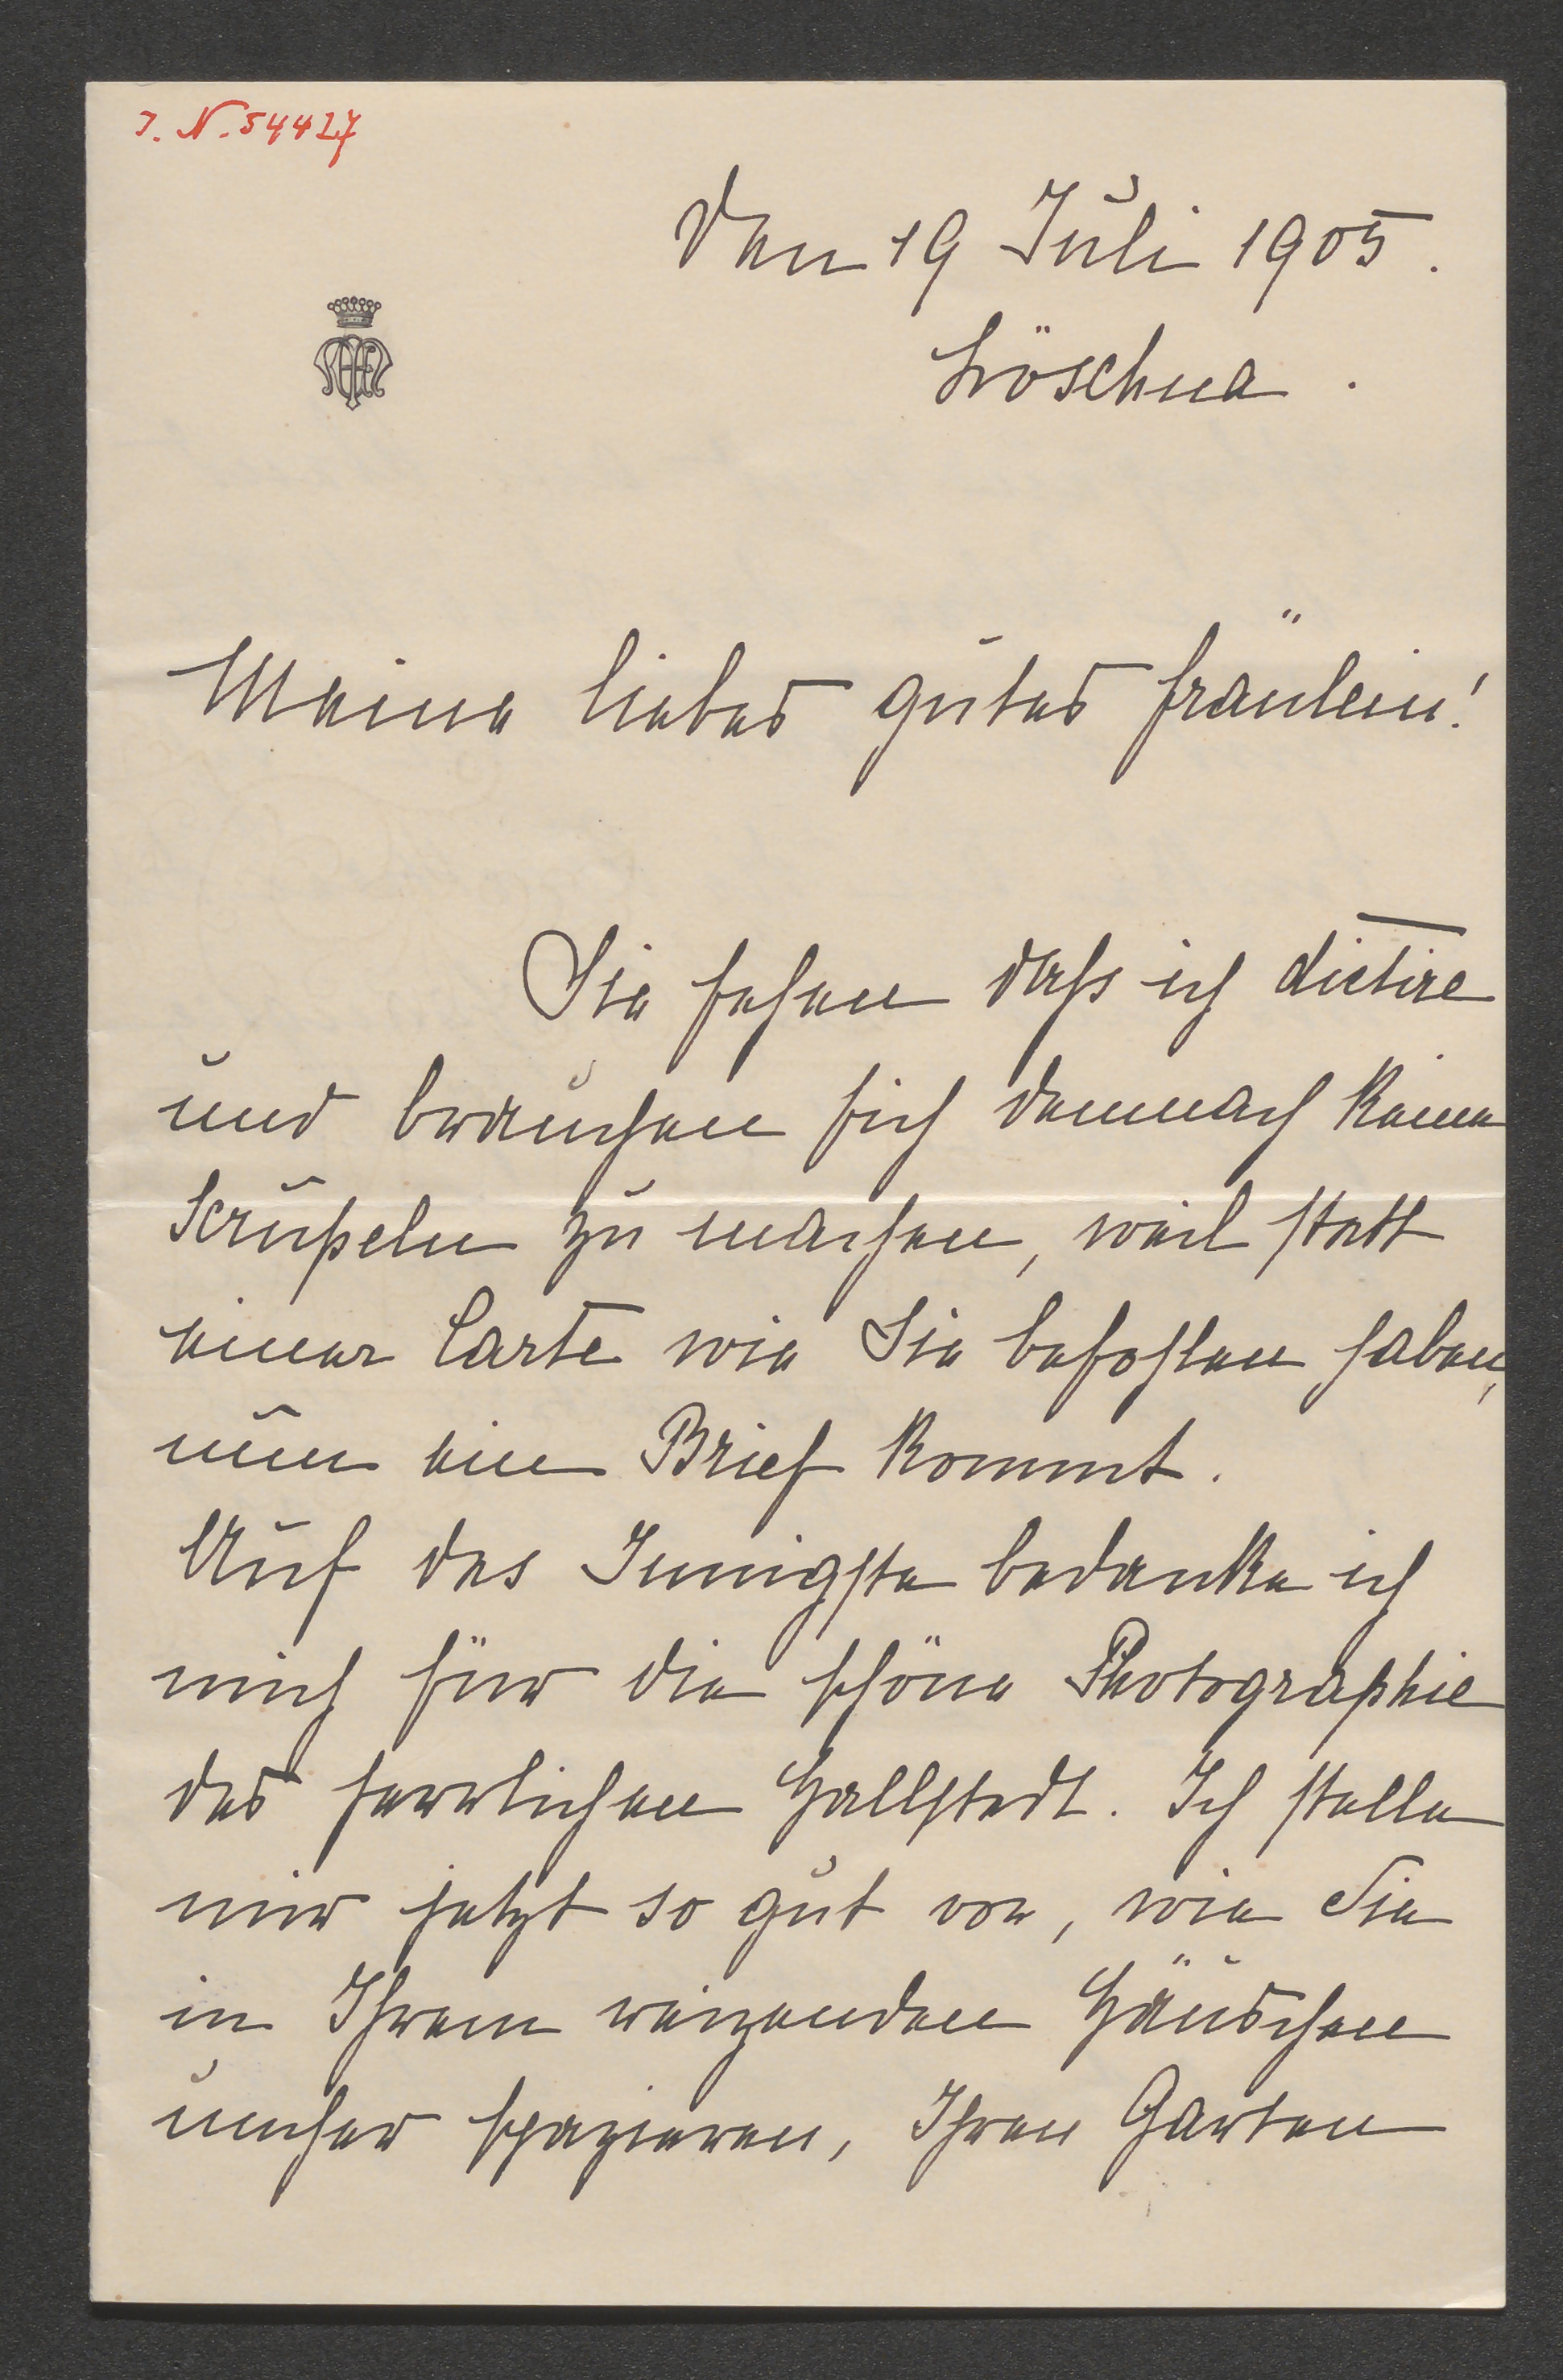 J. N. 54427
Den 19 Juli 1905.
Löschna.
Meine liebes gutes Fräulein!
Sie sehen daß ich dictire
und brauchen sich demnach keine
Scrupeln zu machen, weil statt
einer Carte wie Sie befohlen haben,
nun ein Brief kommt.
Auf das Innigste bedanke ich
mich für die schöne Photographie
des herrlichen Hallstadt. Ich stelle
mir jetzt so gut vor, wie Sie
in Ihrem reizenden Häuschen
umher spazieren, Ihren Garten